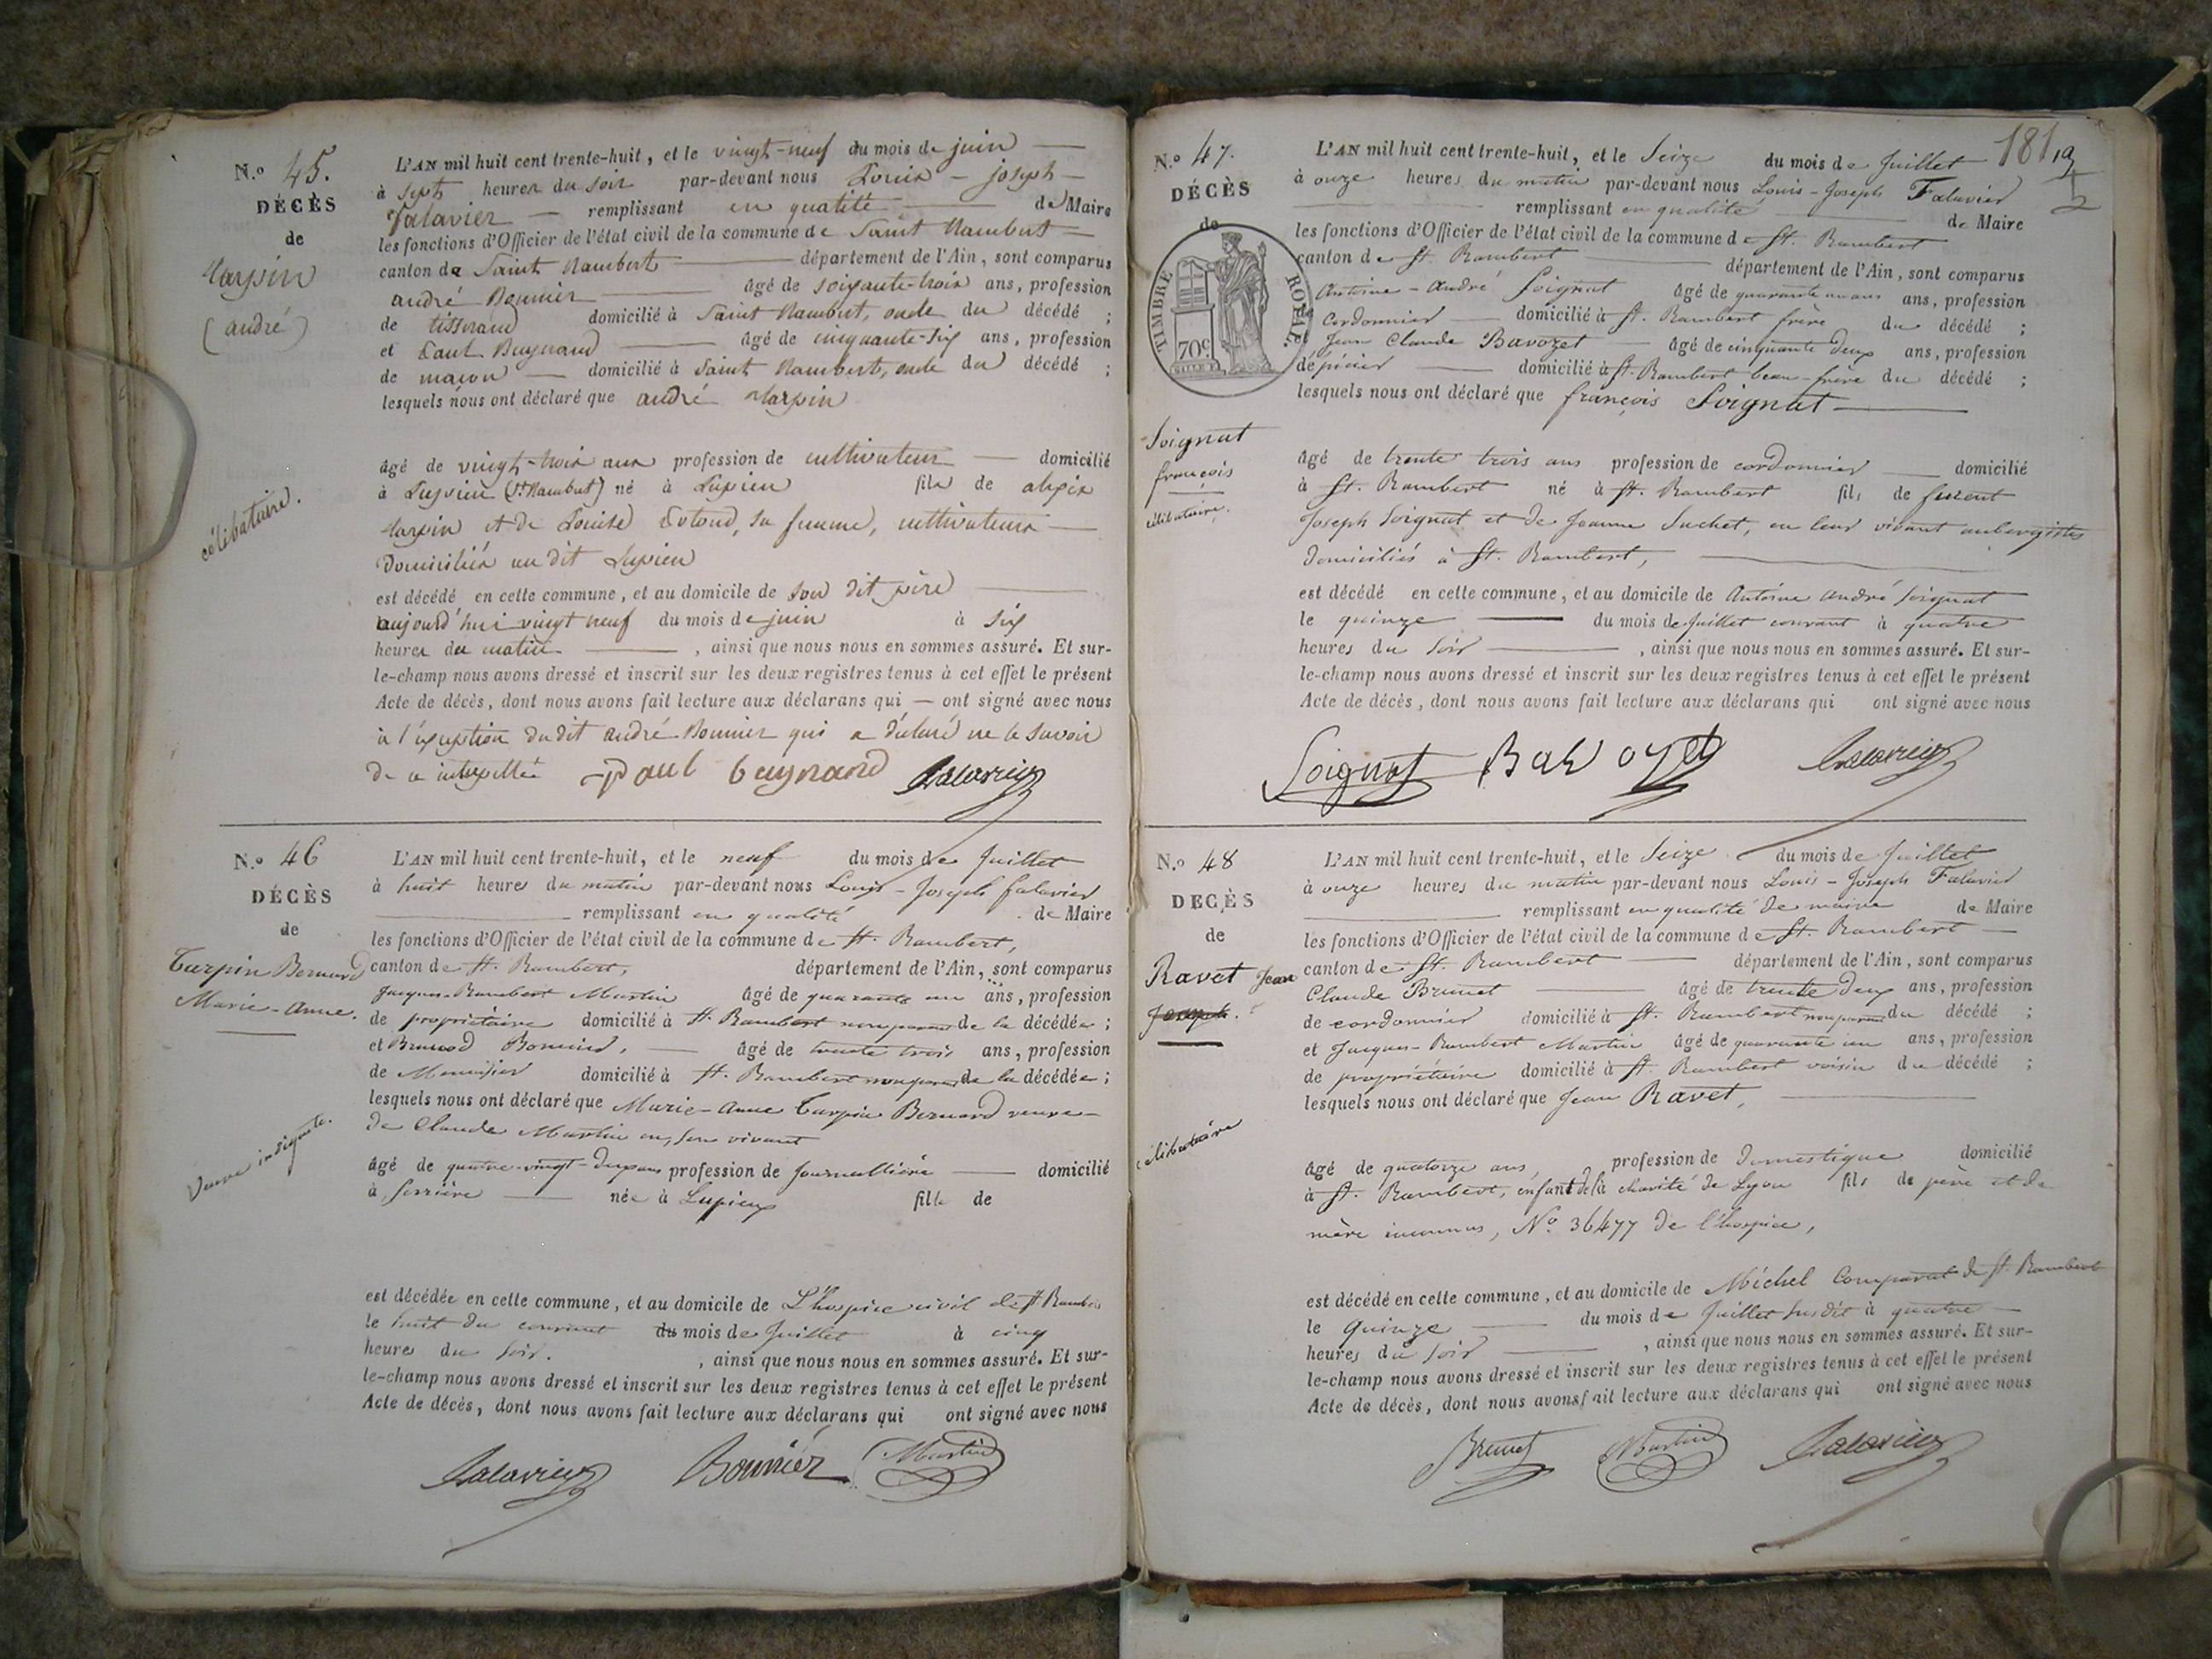 N.º 45.
DÉCÈS
de
(andré)
célibataire.
L'AN mil huit cent trente-huit, et le vingt-neuf du mois de juin
à sept heures du soir par-devant nous Louis-joseph
falavier remplissant en qualité de Maire
les fonctions d'Officier de l'état civil de la commune de Saint Rambert
canton de Saint Rambert département de l'Ain, sont comparus
andré Bonnier âgé de soixante-trois ans, profession
de tisserand domicilié à Saint Rambert, oncle du décédé ;
et Paul Buynand âgé de cinquante-six ans, profession
de maçon domicilié à Saint Rambert, oncle du décédé ;
lesquels nous ont déclaré que andré
âgé de vingt-trois ans profession de cultivateur domicilié
à (St Rambert) né à fils de
et de Louise sa femme, cultivateurs
Domiciliés au dit
est décédé en cette commune, et au domicile de son dit père
aujourd'hui vingt neuf du mois de juin à six
heures du matin , ainsi que nous nous en sommes assuré. Et sur-
le-champ nous avons dressé et inscrit sur les deux registres tenus à cet effet le présent
Acte de décès, dont nous avons fait lecture aux déclarans qui — ont signé avec nous
à l'exception du dit andré Bonnier qui a déclaré ne le savoir
de ce interpellé Paul buynand falavier
N.º 46
DÉCÈS
de
Turpin Bernard
Marie-Anne.
Veuve
L'AN mil huit cent trente-huit, et le neuf du mois de Juillet
à huit heures du matin par-devant nous Louis-Joseph falavier
remplissant en qualité de Maire
les fonctions d'Officier de l'état civil de la commune de St. Rambert,
canton de St. Rambert, département de l'Ain, sont comparus
Jacques-Rambert Martin âgé de quarante un ans, profession
de propriétaire domicilié à St. Rambert non parent de la décédée ;
et Bonnier, âgé de trente trois ans, profession
de Menuisier domicilié à St. Rambert non parent de la décédée ;
lesquels nous ont déclaré que Marie-Anne Turpin Bernard veuve
de Claude Martin en son vivant
âgé de quatre-vingt-deux ans profession de Journallière domicilié
à Serrière née à fille de
est décédée en cette commune, et au domicile de L'hospice civil de St Rambert
le huit du courant du mois de Juillet à cinq
heures du soir. , ainsi que nous nous en sommes assuré. Et sur-
le-champ nous avons dressé et inscrit sur les deux registres tenus à cet effet le présent
Acte de décès, dont nous avons fait lecture aux déclarans qui ont signé avec nous
falavier Bonnier Martin
181
N.º 47.
DÉCÈS
de
TIMBRE ROYAL
70c
Soignat
françois
célibataire.
L'AN mil huit cent trente-huit, et le Seize du mois de Juillet
à onze heures du matin par-devant nous Louis-Joseph Falavier
remplissant en qualité de Maire
les fonctions d'Officier de l'état civil de la commune de St. Rambert
canton de St. Rambert département de l'Ain, sont comparus
Antoine-André Soignat âgé de quarante ans, profession
Cordonnier domicilié à St. Rambert frère du décédé ;
Jean Claude Bavozet âgé de cinquante deux ans, profession
d'épicier domicilié à St. Rambert beau-frère du décédé ;
lesquels nous ont déclaré que françois Soignat
âgé de trente trois ans profession de cordonnier domicilié
à St. Rambert né à St. Rambert fils de furent
Joseph Soignat et de Jeanne Suchet, en leur vivant aubergistes
domiciliés à St. Rambert,
est décédé en cette commune, et au domicile de Antoine André Soignat
le quinze du mois de Juillet courant à quatre
heures du soir , ainsi que nous nous en sommes assuré. Et sur-
le-champ nous avons dressé et inscrit sur les deux registres tenus à cet effet le présent
Acte de décès, dont nous avons fait lecture aux déclarans qui ont signé avec nous
Soignat Bavozet falavier
N.º 48
DECÈS
de
Ravet Jean
célibataire
L'AN mil huit cent trente-huit, et le Seize du mois de Juillet
à onze heures du matin par-devant nous Louis-Joseph Falavier
remplissant en qualité de maire de Maire
les fonctions d'Officier de l'état civil de la commune de St. Rambert
canton de St. Rambert département de l'Ain, sont comparus
Claude Brunet âgé de trente deux ans, profession
de cordonnier domicilié à St. Rambert non parent du décédé ;
et Jacques-Rambert Martin âgé de quarante un ans, profession
de propriétaire domicilié à St. Rambert voisin du décédé ;
lesquels nous ont déclaré que Jean Ravet,
âgé de quatorze ans, profession de Domestique domicilié
à St. Rambert, enfant de la charité de Lyon fils de père et de
mère inconnus, No. 36477 de l'hospice,
est décédé en cette commune, et au domicile de Michel Comparat de St. Rambert
le Quinze du mois de Juillet susdit à quatre
heures du soir , ainsi que nous nous en sommes assuré. Et sur-
le-champ nous avons dressé et inscrit sur les deux registres tenus à cet effet le présent
Acte de décès, dont nous avons fait lecture aux déclarans qui ont signé avec nous
Brunet Martin falavier